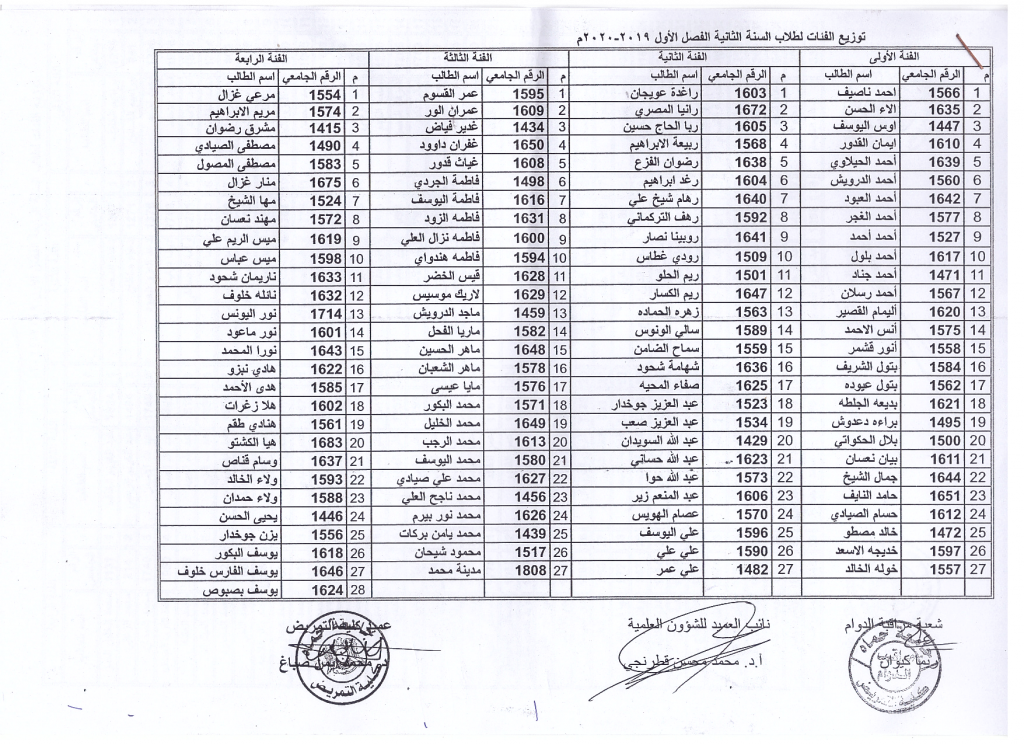 توزيع الفئات لطلاب السنة الثانية الفصل الأول ٢٠١٩-٢٠٢٠م
الفئة الأولى الفئة الثانية الفئة الثالثة الفئة الرابعة
م الرقم الجامعي اسم الطالب م الرقم الجامعي اسم الطالب م الرقم الجامعي اسم الطالب م الرقم الجامعي اسم الطالب
1 1566 احمد ناصيف 1 1603 راغدة عويجان 1 1595 عمر القسوم 1 1554 مرعي غزال
2 1635 الاء الحسن 2 1672 رانيا المصري 2 1609 عمران الور 2 1574 مريم الابراهيم
3 1447 اوس اليوسف 3 1605 ربا الحاج حسين 3 1434 غدير فياض 3 1415 مشرق رضوان
4 1610 ايمان القدور 4 1568 ربيعة الابراهيم 4 1650 غفران داوود 4 1490 مصطفى الصيادي
5 1639 أحمد الحيلاوي 5 1638 رضوان الفزع 5 1608 غياث قدور 5 1583 مصطفى المصول
6 1560 أحمد الدرويش 6 1604 رغد ابراهيم 6 1498 فاطمة الجردي 6 1675 منار غزال
7 1642 أحمد العبود 7 1640 رهام شيخ علي 7 1616 فاطمة اليوسف 7 1524 مها الشيخ
8 1577 أحمد الغجر 8 1592 رهف التركماني 8 1631 فاطمه الزود 8 1572 مهند نعسان
9 1527 أحمد أحمد 9 1641 روبينا نصار 9 1600 فاطمه نزال العلي 9 1619 ميس الريم علي
10 1617 أحمد بلول 10 1509 رودي غطاس 10 1594 فاطمه هنداوي 10 1598 ميس عباس
11 1471 أحمد جناد 11 1501 ريم الحلو 11 1628 قيس الخضر 11 1633 ناريمان شحود
12 1567 أحمد رسلان 12 1647 ريم الكسار 12 1629 لاريك موسيس 12 1632 نائله خلوف
13 1620 أليمام القصير 13 1563 زهره الحماده 13 1459 ماجد الدرويش 13 1714 نور اليونس
14 1575 أنس الاحمد 14 1589 سالي الونوس 14 1582 ماريا الفحل 14 1601 نور ماعود
15 1558 أنور قشمر 15 1559 سماح الضامن 15 1648 ماهر الحسين 15 1643 نورا المحمد
16 1584 بتول الشريف 16 1636 شهامة شحود 16 1578 ماهر الشعبان 16 1622 هادي نبزو
17 1562 بتول عيوده 17 1625 صفاء المحيه 17 1576 مايا عيسى 17 1585 هدى الأحمد
18 1621 بديعه الجلطه 18 1523 عبد العزيز جوخدار 18 1571 محمد البكور 18 1602 هلا زغرات
19 1495 براءه دعدوش 19 1534 عبد العزيز صعب 19 1649 محمد الخليل 19 1561 هنادي طقم
20 1500 بلال الحكواتي 20 1429 عبد الله السويدان 20 1613 محمد الرجب 20 1683 هيا الكشتو
21 1611 بيان نعسان 21 1623 عبد الله حساني 21 1580 محمد اليوسف 21 1637 وسام قناص
22 1644 جمال الشيخ 22 1573 عبد الله حوا 22 1627 محمد علي صيادي 22 1593 ولاء الخالد
23 1651 حامد النايف 23 1606 عبد المنعم زير 23 1456 محمد ناجح العلي 23 1588 ولاء حمدان
24 1612 حسام الصيادي 24 1570 عصام الهويس 24 1626 محمد نور بيرم 24 1446 يحيى الحسن
25 1472 خالد مصطو 25 1596 علي اليوسف 25 1439 محمد يامن بركات 25 1556 يزن جوخدار
26 1597 خديجه الاسعد 26 1590 علي علي 26 1517 محمود شيحان 26 1618 يوسف البكور
27 1557 خوله الخالد 27 1482 علي عمر 27 1808 مدينة محمد 27 1646 يوسف الفارس خلوف
28 1624 يوسف بصبوص
شعبة مراقبة الدوام نائب العميد للشؤون العلمية عميد كلية التمريض
ريما كيوان أ.د. محمد محسن قطرنجي د. محمد أيمن صباغ
جامعة حماه
كلية التمريض